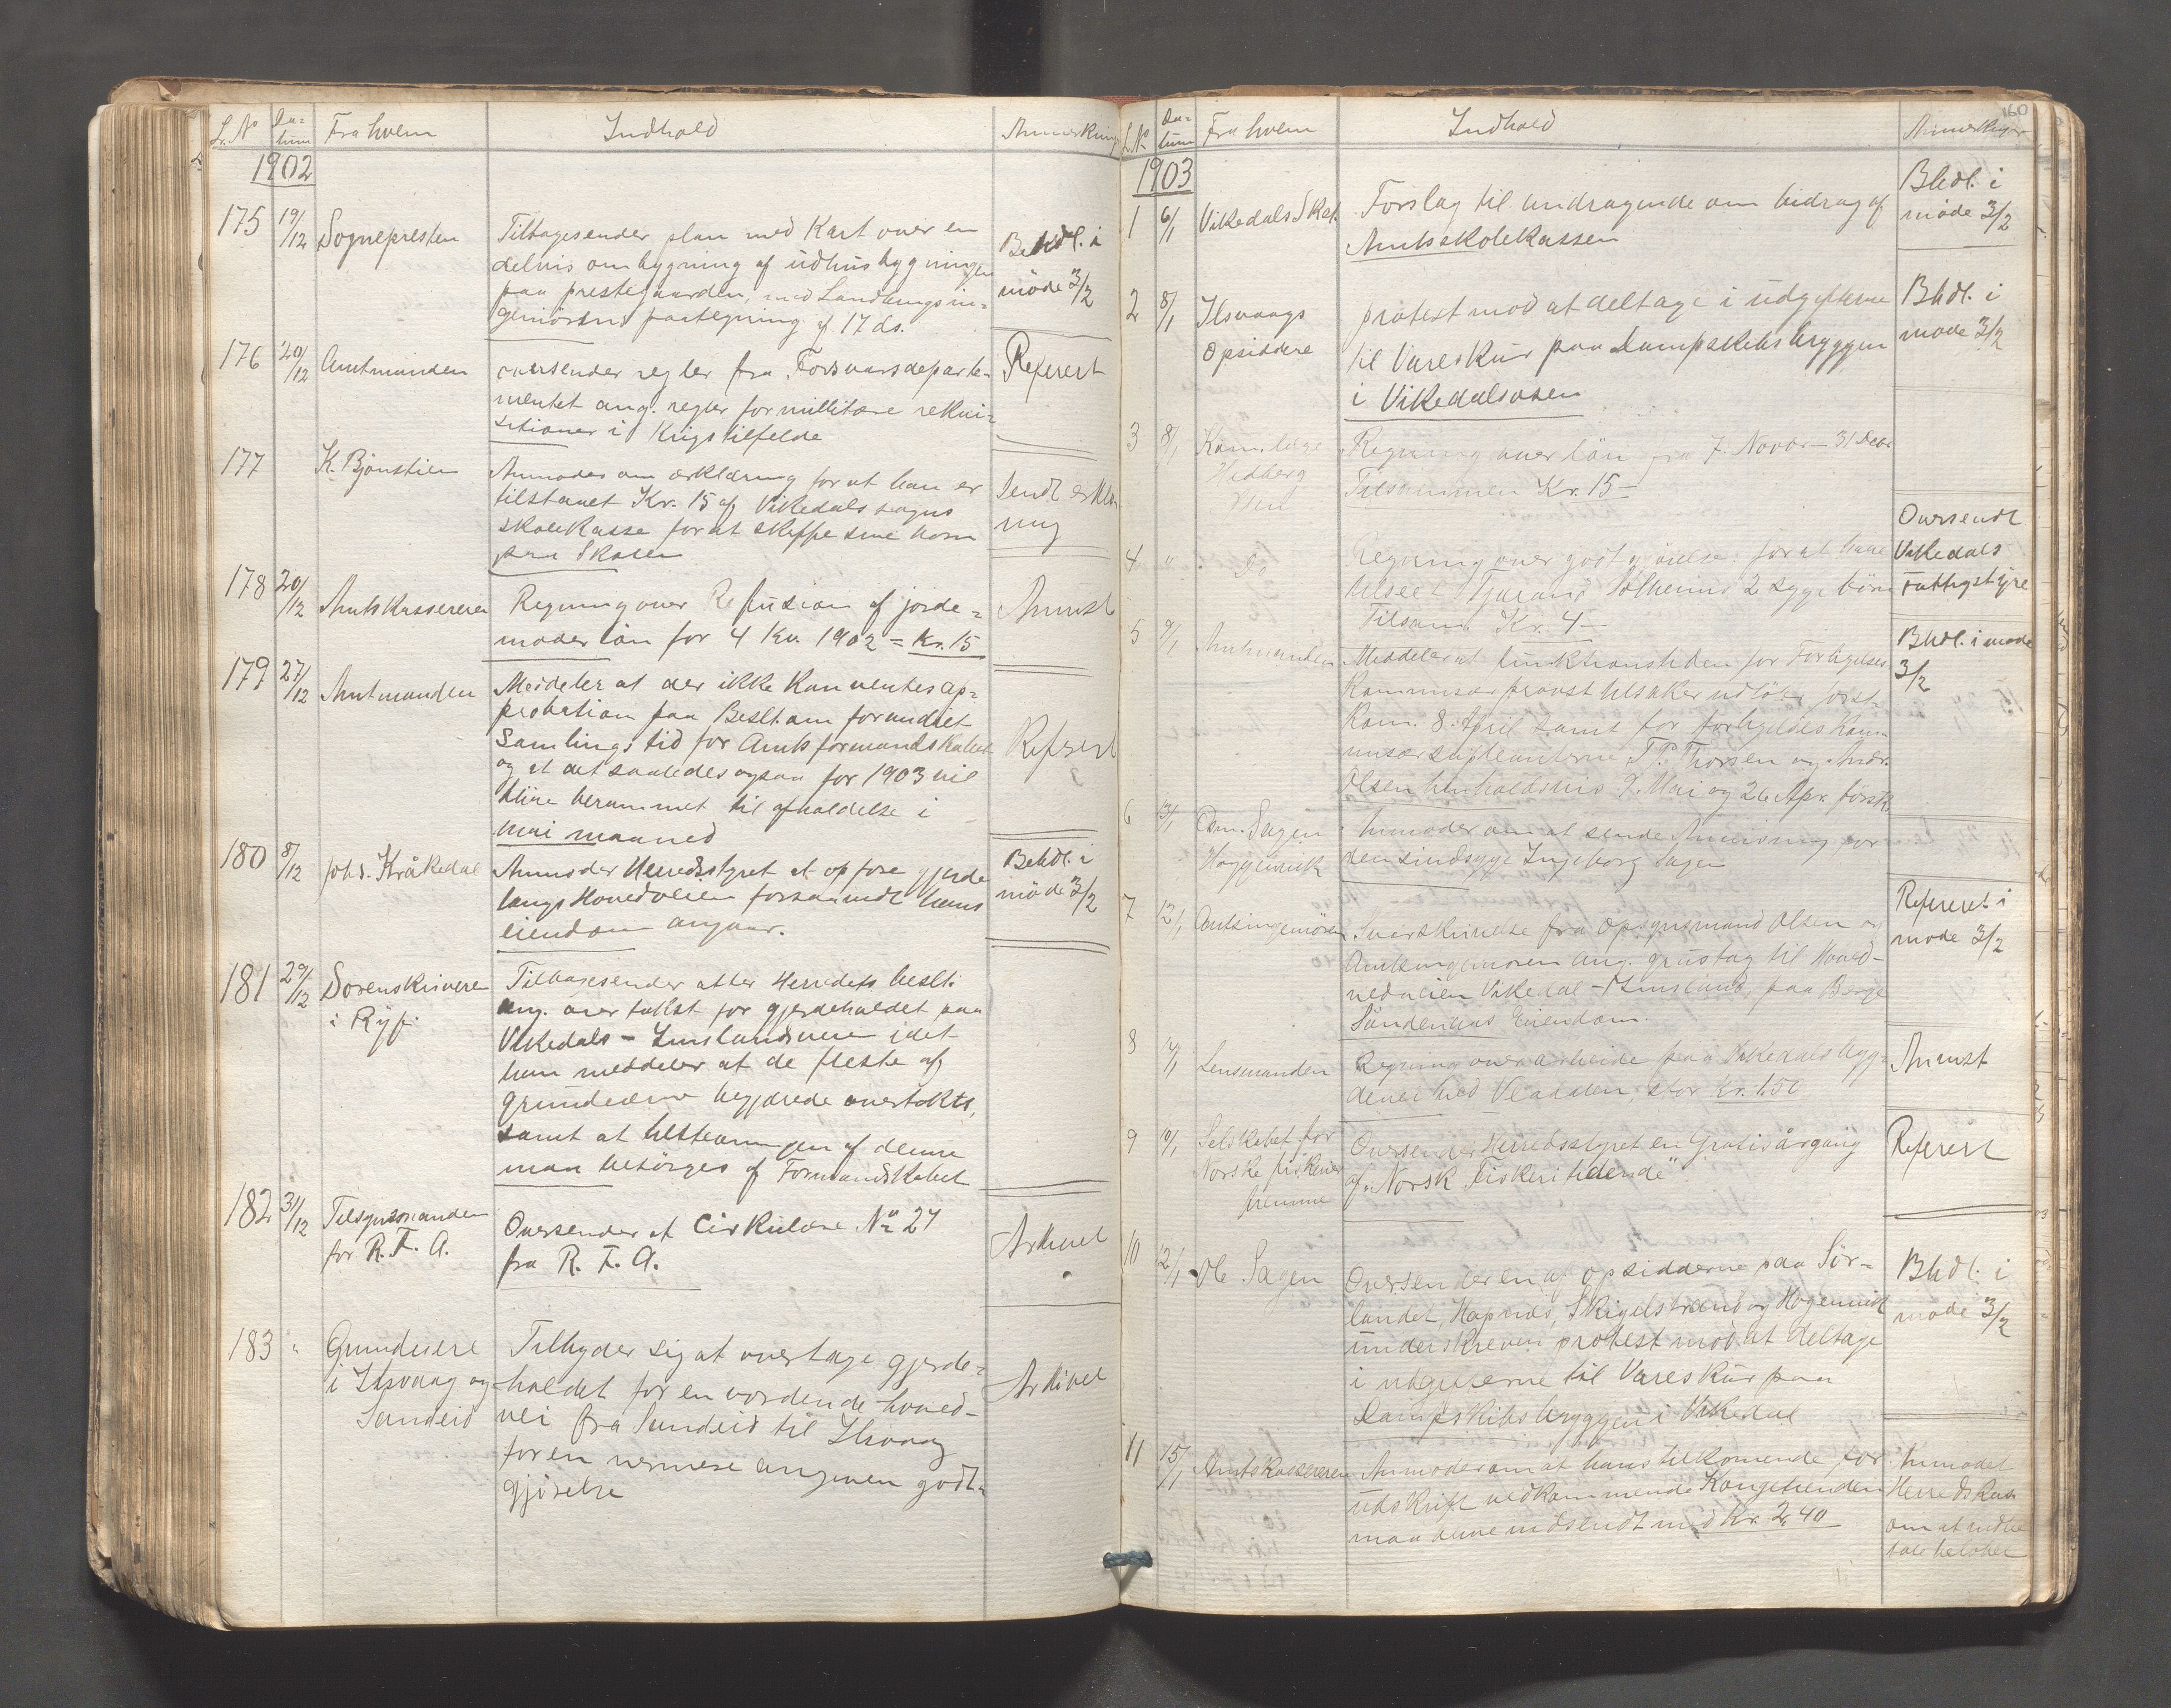 L. No Da-tum Fra hvem Indhold Anmerkning
1902
175 19/12 Sognepresten Tilbagesender plan med Kart over en
delvis ombygning af udhusbygningen
paa prestegaarden, med Landbrugsin-
geniörens paategning af 17 ds.
Behdl. i
möde 3/2
176 20/12 Amtmanden oversender regler fra Forsvarsdeparte-
mentet ang. regler for millitære rekvi-
sitioner i Krigstilfelde
Referert
177 K. Bjonstien Anmodes om erklæring for at han er
tilstaaet Kr. 15 af Vikedals sogns
skolekasse for at skysse sine born
paa Skolen
Sendt erklæ
ring
178 20/12 Amtskassereren Regning over Refusion af jorde-
moderlön for 4 Kv. 1902 = Kr. 15
Anvist
179 27/12 Amtmanden Meddeler at der ikke kan ventes ap-
probation paa Beslt. om forandret
Samlingstid for Amtsformandskabet
og at det saaledes ogsaa for 1903 vil
blive berammet til afholdelse i
mai maaned
Referert
180 8/12 Johs. Kråkedal Anmoder Herredsstyret at opföre gjerde
langs Hovedveien forsaavidt hans
eiendom angaar.
Behdl. i
möde 3/2
181 29/12 Sorenskriveren
i Ryf.
Tilbagesender atter Herredets beslt.
ang. overtakst for gjerdeholdet paa
Vikedals - Imslandsveien idet
han meddeler at de fleste af
grundeierne begjærede overtakst,
samt at tilstevningen af denne
maa besörges af Formandskabet
182 31/12 Tilsynsmanden
for R. F. A.
Oversender et Cirkulære No 27
fra R. F. A.
Arkivet
183 " Grundeiere
i Ilsvaag og
Sandeid
Tilbyder sig at overtage gjerde-
holdet for en vordende hoved-
vei fra Sandeid til Ilsvaag
for en nermere angiven godt-
gjörelse
Arkivet
160
L. No Da-tum Fra hvem Indhold Anmerkninger
1903
1 6/1 Vikedals Skst. Forslag til andragende om bidrag af
Amtsskolekassen
Bhdl. i
möde 3/2
2 8/1 Ilsvaags
Opsiddere
protest mod at deltage i udgifterne
til Vareskur paa Dampskibsbryggen
i Vikedalsosen
Bhdl. i
möde 3/2
3 8/1 Kom. læge
Hedberg
Ölen
Regning over lön fra 7. Novbr - 31 Decbr
Tilsammen Kr. 15 -
4 " Do Regning over godtgjörelse for at have
tilseet Tjerand Solheims 2 syge börn
Tilsam. Kr. 4 -
Oversendt
Vikedals
Fattigstyre
5 9/1 Amtmanden Meddeler at funktionstiden for Forligelses
Kommisær provst Ulsaker udlöber först-
kom. 8. April samt for forligelseskom-
misærsupleanterne T. P. Thorsen og Andr.
Olsen henholdsvis 7. Mai og 26 Apr. förstk.
Bhdl. i möde
3/2
6 13/1 Osm. Sagen
Hoggenvik
Anmoder om at sende Anvisning for
den sindssyge Ingeborg Sagen
7 12/1 Amtsingeniören Svarskrivelse fra opsynsmand Olsen og
Amtsingeniören ang. grustag til Hoved-
veien Vikedal - Imsland, paa Berge
Söndenaas Eiendom.
Referert i
möde 3/2
8 7/1 Lensmanden Regning over arbeide paa Vikedals byg-
devei ved stor Kr. 1.50
Anvist
9 10/1 Selskabet for
Norske fiskeriers
fremme
Oversender Herredsstyret en Gratisårgang
af "Norsk Fiskeritidende"
Referert
10 12/1 Ole Sagen Oversender en af opsidderne paa Sör-
landet, Hapnes, Skigelstrand og Hogenvik
underskreven protest mod at deltage
i udgifterne til Vareskur paa
Dampskibsbryggen i Vikedal
Bhdl. i
möde 3/2
11 15/1 Amtskassereren Anmoder om at hans tilkomende for
udskrift vedkommende Kongetienden
maa blive indsendt med Kr. 2,40
Anmodet
Herredskas.
om at indbe
tale beløbet